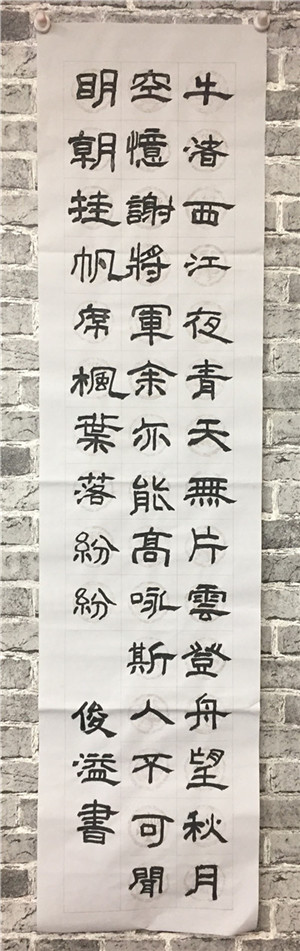 牛渚西江夜青天無片雲登舟望秋月
空憶謝將軍余亦能高咏斯人不可聞
明朝挂帆席楓葉落紛紛
俊溢書